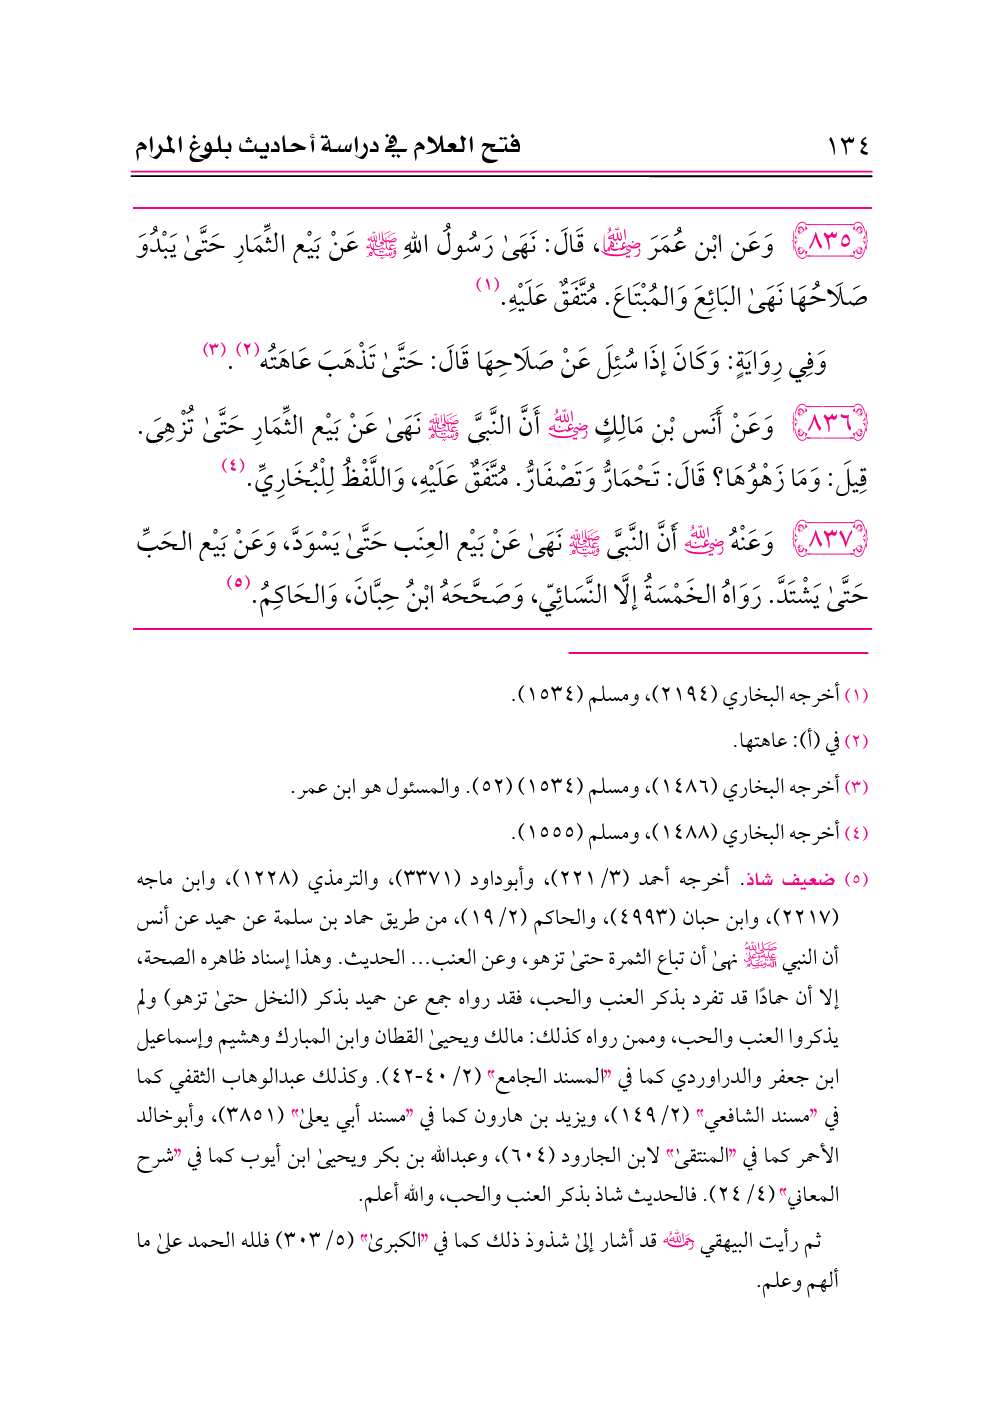 ١٣٤ فتح العلام في دراسة أحاديث بلوغ المرام
٨٣٥ وَعَنِ ابْنِ عُمَرَ رضي الله عنهما، قَالَ: نَهَىٰ رَسُولُ اللهِ ﷺ عَنْ بَيْعِ الثِّمَارِ حَتَّىٰ يَبْدُوَ
صَلَاحُهَا نَهَىٰ البَائِعَ وَالمُبْتَاعَ. مُتَّفَقٌ عَلَيْهِ.(١)
وَفِي رِوَايَةٍ: وَكَانَ إذَا سُئِلَ عَنْ صَلَاحِهَا قَالَ: حَتَّىٰ تَذْهَبَ عَاهَتُه(٢) .(٣)
٨٣٦ وَعَنْ أَنَسِ بْنِ مَالِكٍ رضي الله عنه أَنَّ النَّبِيَّ ﷺ نَهَىٰ عَنْ بَيْعِ الثِّمَارِ حَتَّىٰ تُزْهِيَ.
قِيلَ: وَمَا زَهْوُهَا؟ قَالَ: تَحْمَارُّ وَتَصْفَارُّ. مُتَّفَقٌ عَلَيْهِ، وَاللَّفْظُ لِلْبُخَارِيِّ.(٤)
٨٣٧ وَعَنْهُ رضي الله عنه أَنَّ النَّبِيَّ ﷺ نَهَىٰ عَنْ بَيْعِ العِنَبِ حَتَّىٰ يَسْوَدَّ، وَعَنْ بَيْعِ الحَبِّ
حَتَّىٰ يَشْتَدَّ. رَوَاهُ الخَمْسَةُ إلَّا النَّسَائِيّ، وَصَحَّحَهُ ابْنُ حِبَّانَ، وَالحَاكِمُ.(٥)
(١) أخرجه البخاري (٢١٩٤)، ومسلم (١٥٣٤).
(٢) في (أ): عاهتها.
(٣) أخرجه البخاري (١٤٨٦)، ومسلم (١٥٣٤) (٥٢). والمسئول هو ابن عمر.
(٤) أخرجه البخاري (١٤٨٨)، ومسلم (١٥٥٥).
(٥) ضعيف شاذ. أخرجه أحمد (٣/ ٢٢١)، وأبوداود (٣٣٧١)، والترمذي (١٢٢٨)، وابن ماجه
(٢٢١٧)، وابن حبان (٤٩٩٣)، والحاكم (٢/ ١٩)، من طريق حماد بن سلمة عن حميد عن أنس
أن النبي ﷺ نهىٰ أن تباع الثمرة حتىٰ تزهو، وعن العنب... الحديث. وهذا إسناد ظاهره الصحة،
إلا أن حمادًا قد تفرد بذكر العنب والحب، فقد رواه جمع عن حميد بذكر (النخل حتىٰ تزهو) ولم
يذكروا العنب والحب، وممن رواه كذلك: مالك ويحيىٰ القطان وابن المبارك وهشيم وإسماعيل
ابن جعفر والدراوردي كما في "المسند الجامع" (٢/ ٤٠-٤٢). وكذلك عبدالوهاب الثقفي كما
في "مسند الشافعي" (٢/ ١٤٩)، ويزيد بن هارون كما في "مسند أبي يعلىٰ" (٣٨٥١)، وأبوخالد
الأحمر كما في "المنتقىٰ" لابن الجارود (٦٠٤)، وعبدالله بن بكر ويحيىٰ ابن أيوب كما في "شرح
المعاني" (٤/ ٢٤). فالحديث شاذ بذكر العنب والحب، والله أعلم.
ثم رأيت البيهقي رحمه الله قد أشار إلىٰ شذوذ ذلك كما في "الكبرىٰ" (٥/ ٣٠٣) فلله الحمد علىٰ ما
ألهم وعلم.